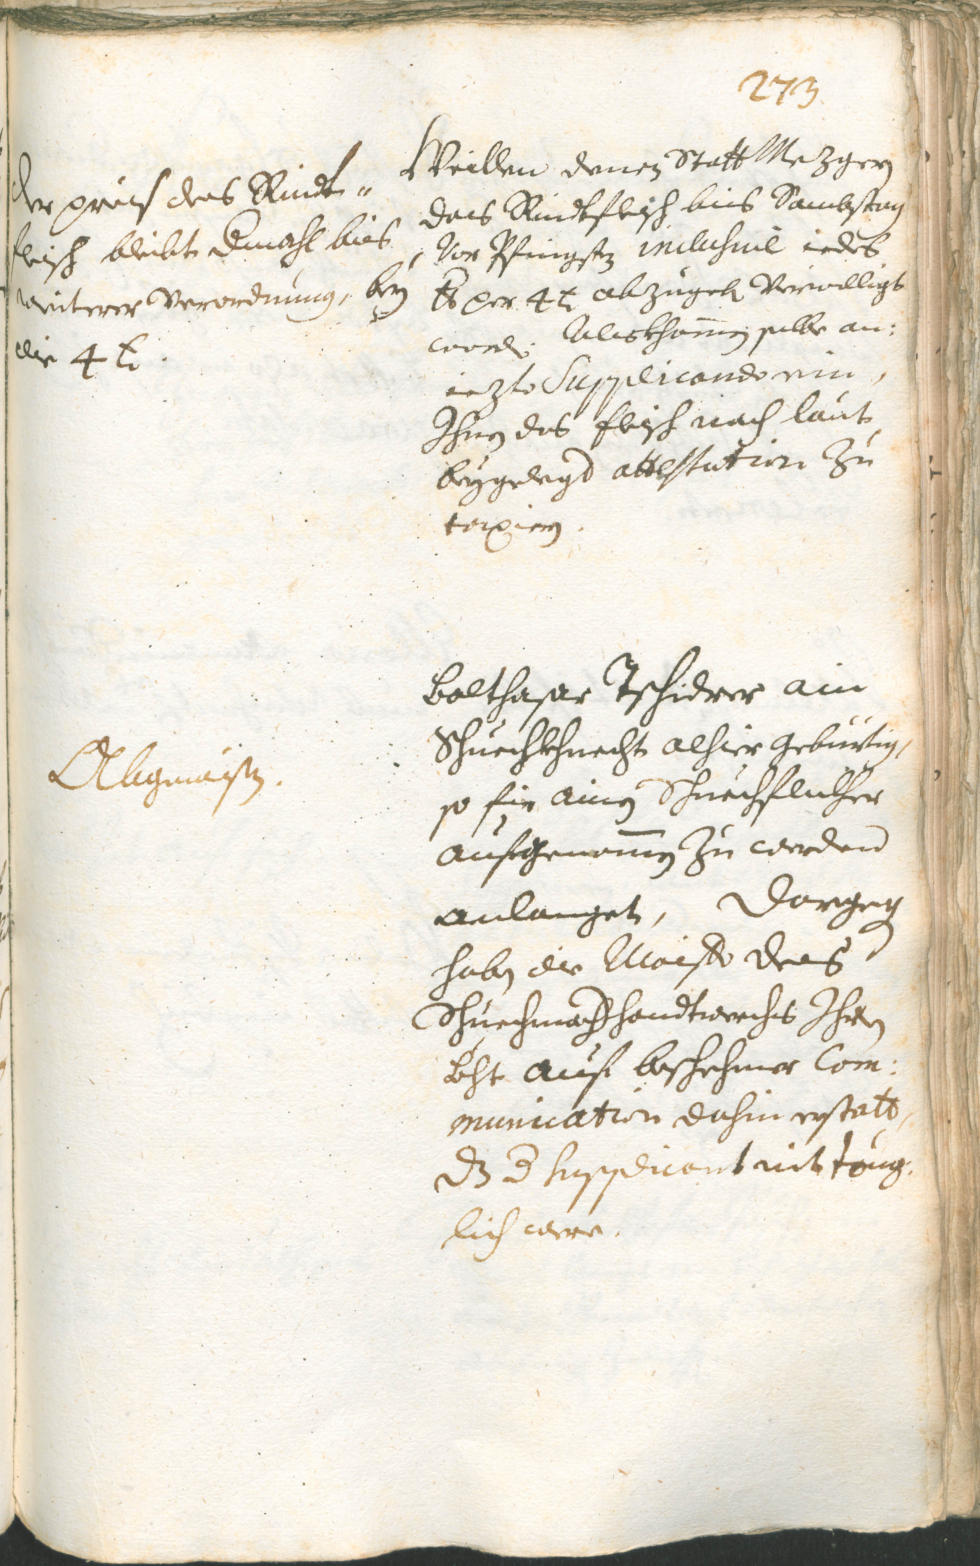 273
der preis des Rindt„
fleisch bleibt dmahl bis
weiterer Verordnung, bey
die 4 k.
Weillen denen Statt Mezgern
das Rindtfleisch bis Sambstag
vor Pfingsten inclusive iedes
℔ per 4 k abzugeben verwilligt
worden. Alls khomen selbe an:
iezto Supplicando ein,
Ihnen das fleisch nach laut
beygelegter attestation zu
taxiern.
Abgewisen.
Balthasar Tschiderer ain
Schuechkhnecht alhier gebürtig,
so für ainen Schuechflickher
aufgenomen zu werden
anlanget, Dargegen
haben die Maister des
Schuechmacher handtwerchs Ihren
Bericht auf beschehener Com:
munication dahin erstatt,
dz der Supplicant nit taug:
lich were.